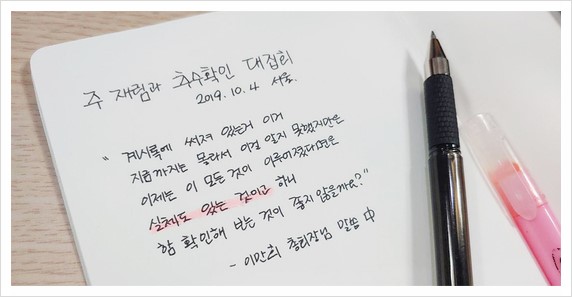 주 재림과 추수확인 대집회
2019.10.4 서울.
"계시록에 써져 있는거 이거
지금까지는 몰라서 이걸 알지 못했지만은
이제는 이 모든것이 이루어졌다면은
실체도 있는 것이라 하니
함 확인해 보는 것이 좋지 않을까요?"
- 이만희 총회장님 말씀 中